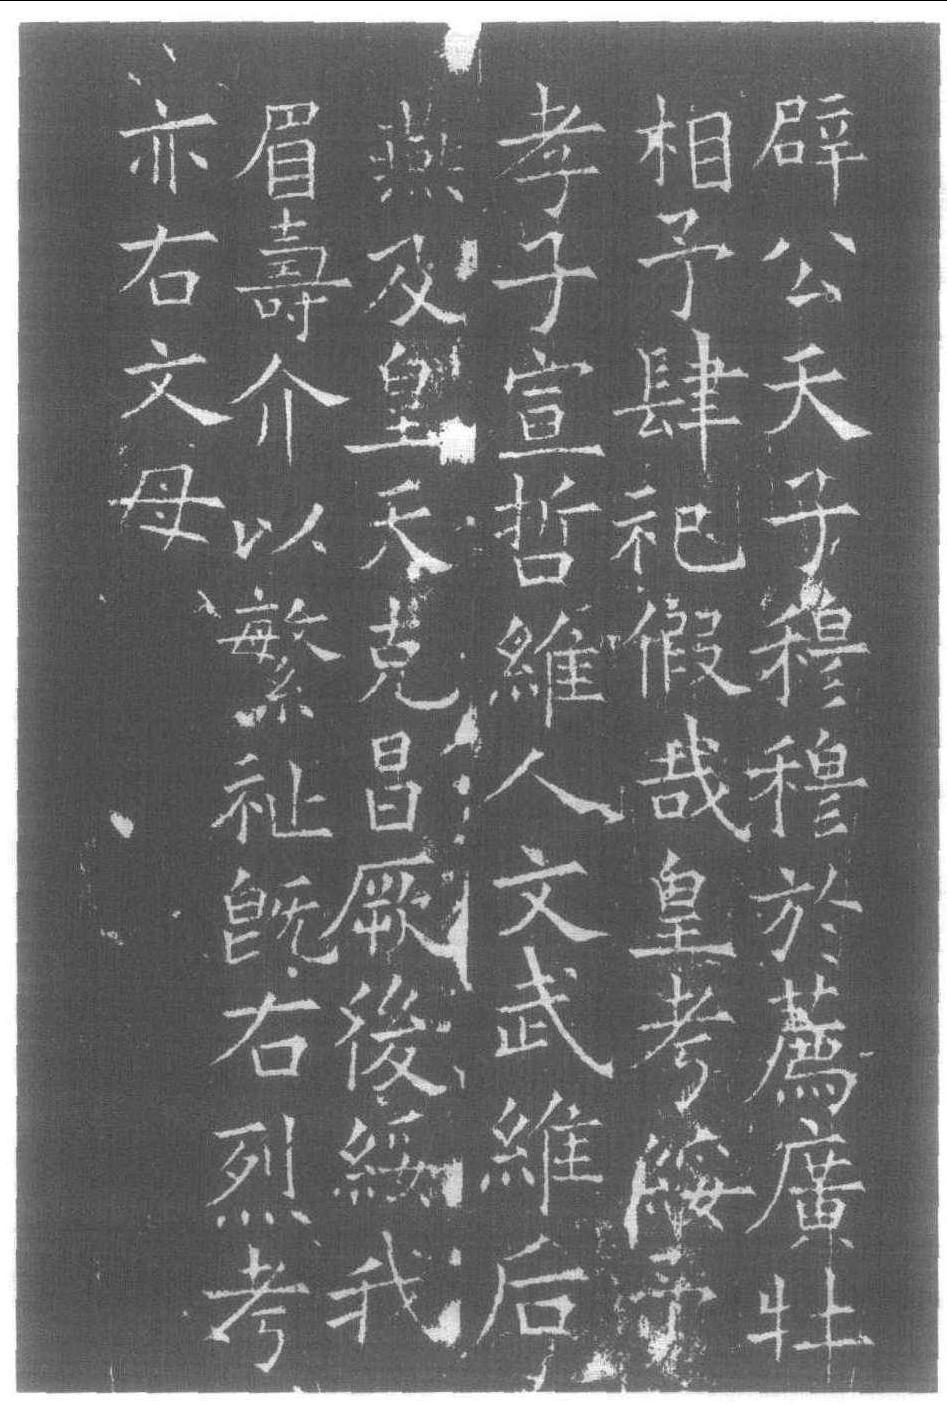 辟公天子穆穆於薦廣牡
相予肆祀假哉皇考綏予
孝子宣哲維人文武維后
燕及皇天克昌厥後綏我
眉壽介以繁祉既右烈考
亦右文母